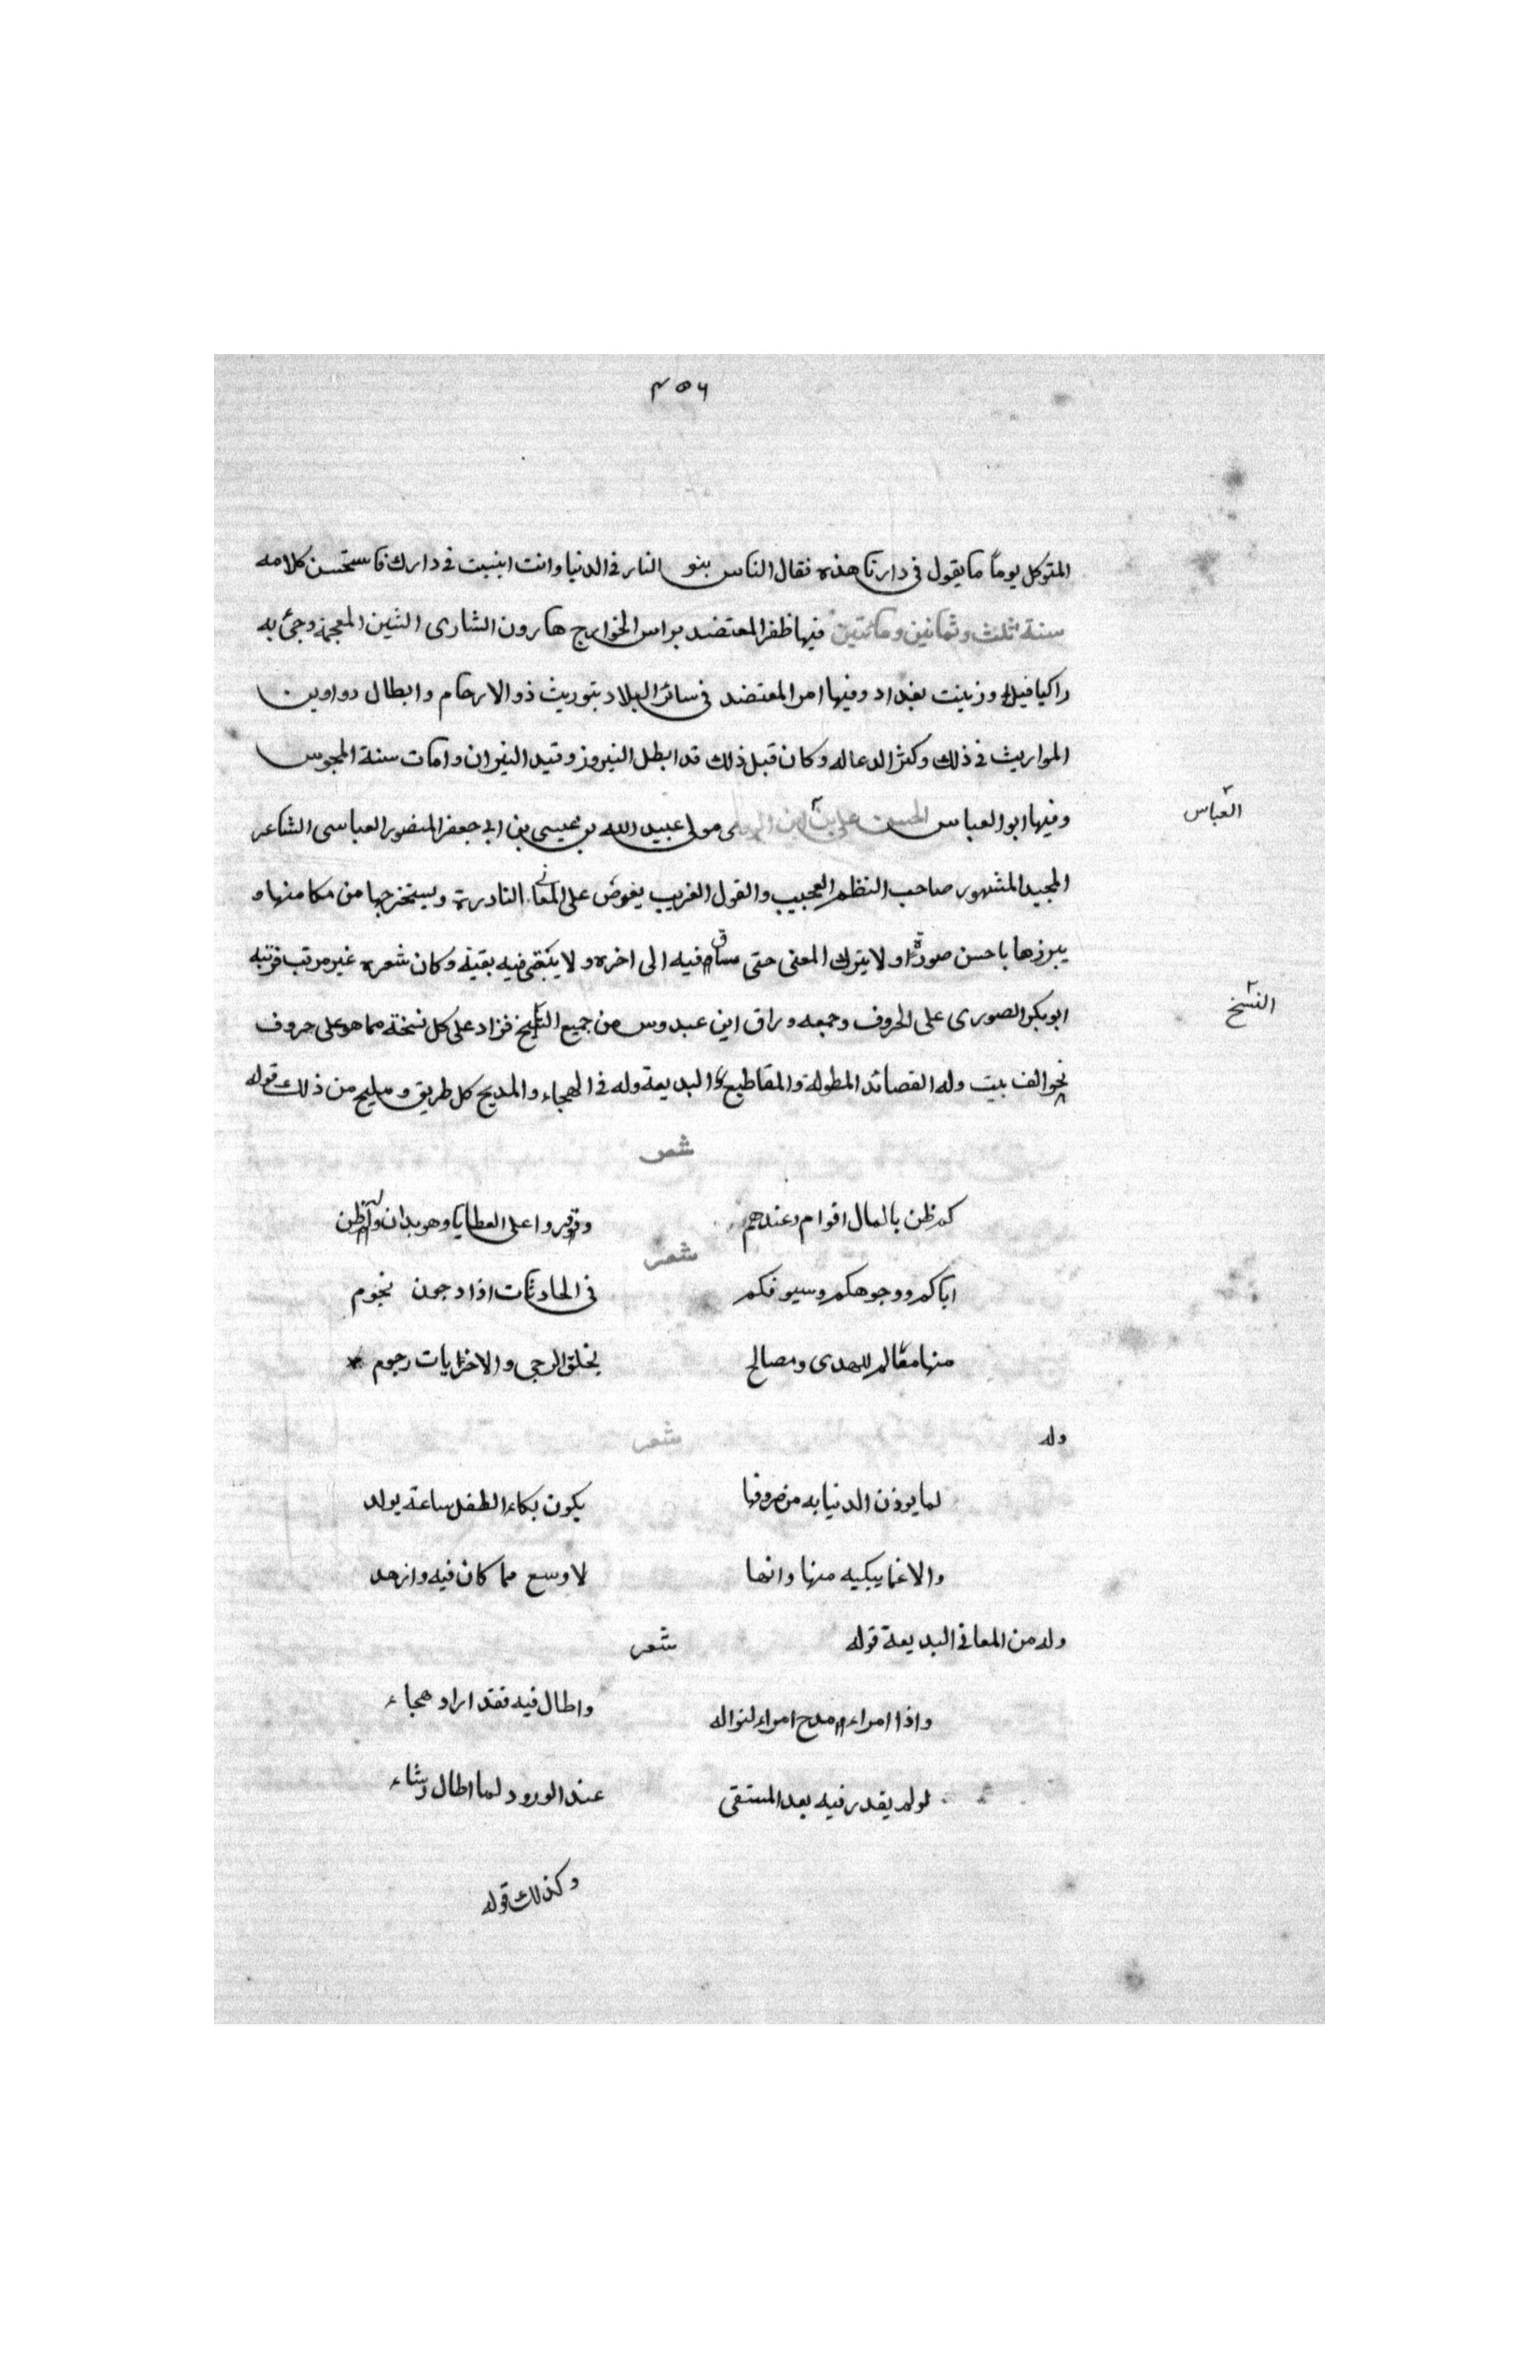 ٤٥٦
المتوكل يوماً ما يقول فى دارنا هذه فقال الناس بنو النار فى الدنيا وانت ابنيت فى دارك فاستحسن كلامه
سنة ثلث وثمانين ومائتين فيها ظفر المعتضد براس الخوارج هارون الشارى الشين المعجمة وجئ به
راكبا فيلا وزينت بغداد وفيها امر المعتضد فى سائر البلاد بتوريث ذو الارحام وابطال دواوين
المواريث فى ذلك وكثر الدعا له وكان قبل ذلك قد ابطل النيروز وقيد النيران وامات سنة المجوس
وفيها ابو العباس الحسن على بن ابن الرومى مولى عبيد الله بن عيسى بن ابى جعفر المنصور العباسى الشاعر
العباس
المجيد المشهور صاحب النظم العجيب والقول الغريب يغوض على المعانى النادرة ويستخرجها من مكامنها و
يبرزها باحسن صورة ولا يترك المعنى حتى فيه الى اخره ولا يبقى فيه بقية وكان شعره غير مرتب فرتبه
ابو بكر الصورى على الحروف وجمعه وراق ابن عبدوس من جميع النسخ فزاد على كل نسخة مما هو على حروف
النسخ
نحو الف بيت وله القصائد المطولة والمقاطيع البديعة وله فى الهجاء والمديح كل طريق ومليح من ذلك قوله
شعر
كم ظن بالمال اقوام وعندهم وفروا على العطايا وهو يدان
شعر
اياكم ووجوهكم وسيوفكم فى الحادثات اذا دجون نجوم
منها معالم للهدى ومصالح يخلق الرجى والاخريات رجوم
وله شعر
لما يوذن الدنيا به من صروفها يكون بكاء الطفل ساعة يولد
والا غما يبكيه منها وانها لاوسع مما كان فيه وارحد
وله من المعانى البديعة قوله شعر
واذا امراء مدح امراء لنواله واطال فيه فقد اراد هجاء
لو لم يقدر فيه بعد المستقى عند الورود لما اطال رشاء
وكذلك قوله